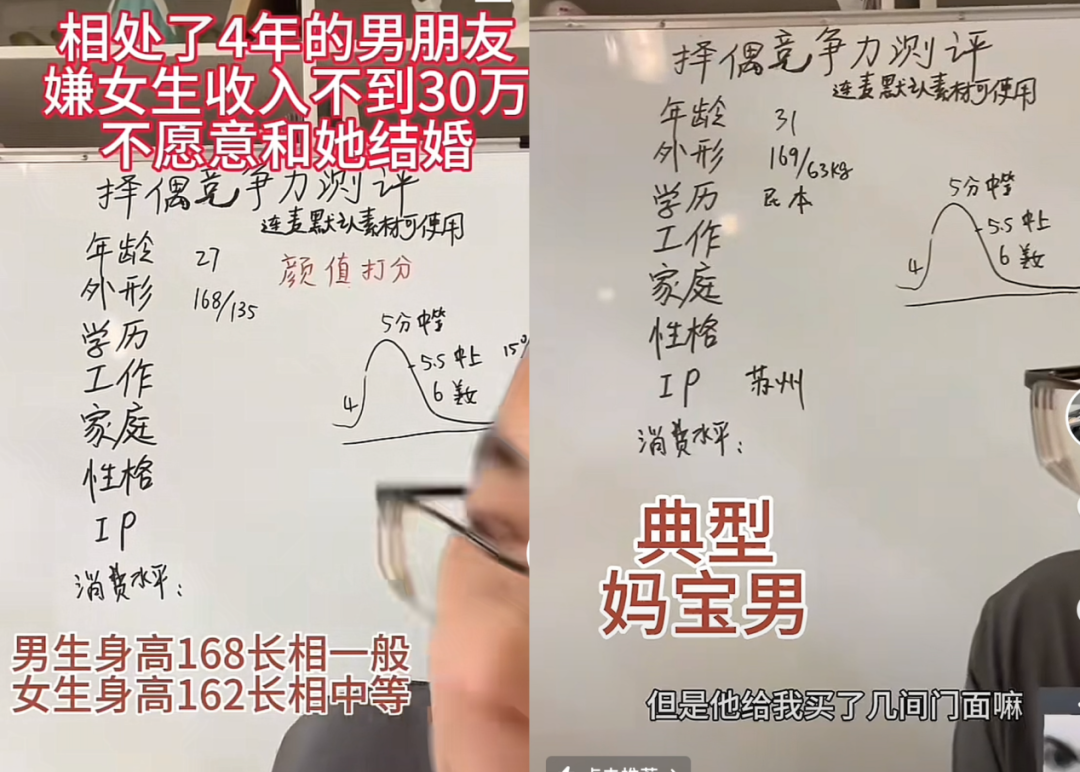 相处了4年的男朋友
嫌女生收入不到30万
不愿意和她结婚
择偶竞争力测评
连麦默认素材可使用
年龄 27
颜值打分
外形 168/135
学历
5分中等
工作
5.5 中上
15°
6 美女
4
家庭
性格
IP
消费水平:
男生身高168长相一般
女生身高162长相中等
择偶竞争力测评
连麦默认素材可使用
年龄 31
外形 169/63kg
学历 民本
5分中等
工作
5.5 中上
6 美女
4
家庭
性格
IP 苏州
消费水平:
典型
妈宝男
但是他给我买了几间门面嘛